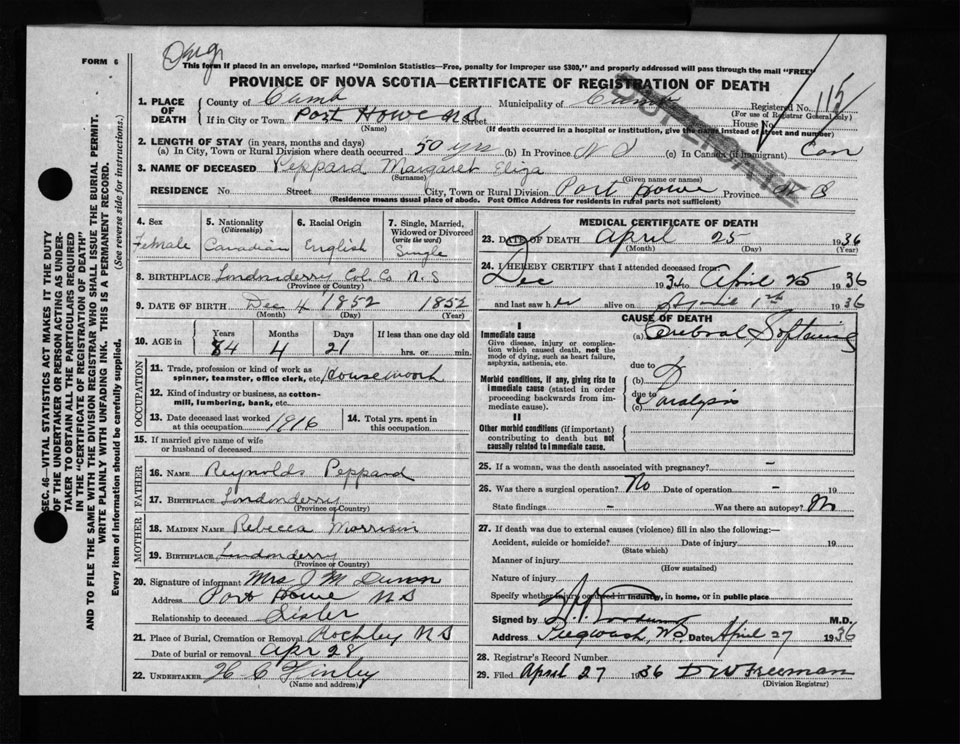 FORM 6
Dup
This form if placed in an envelope, marked "Dominion Statistics—Free, penalty for improper use $300," and properly addressed will pass through the mail "FREE"
PROVINCE OF NOVA SCOTIA—CERTIFICATE OF REGISTRATION OF DEATH
DUPLICATE
SEC. 46—VITAL STATISTICS ACT MAKES IT THE DUTY
OF THE UNDERTAKER OR PERSON ACTING AS UNDER-
TAKER TO OBTAIN ALL THE PARTICULARS REQUIRED
IN THE "CERTIFICATE OF REGISTRATION OF DEATH"
AND TO FILE THE SAME WITH THE DIVISION REGISTRAR WHO SHALL ISSUE THE BURIAL PERMIT.
WRITE PLAINLY WITH UNFADING INK. THIS IS A PERMANENT RECORD.
Every item of information should be carefully supplied. (See reverse side for instructions.)
1. PLACE OF DEATH
County of Cumb Municipality of Cumb Registered No. 115
(For use of Registrar General only)
If in City or Town Port Howe N S Street House No.
(Name) (If death occurred in a hospital or institution, give the name instead of street and number)
2. LENGTH OF STAY (in years, months and days)
(a) In City, Town or Rural Division where death occurred 50 yrs (b) In Province N S (c) In Canada (if immigrant) Can
3. NAME OF DECEASED Peppard Margaret Eliza
(Surname) (Given name or names)
RESIDENCE No Street City, Town or Rural Division Port Howe Province N S
(Residence means usual place of abode. Post Office Address for residents in rural parts not sufficient)
4. Sex Female
5. Nationality (Citizenship) Canadian
6. Racial Origin English
7. Single, Married, Widowed or Divorced (write the word) Single
8. BIRTHPLACE Londonderry Col. Co N.S
(Province or Country)
9. DATE OF BIRTH Dec 4 1852 1852
(Month) (Day) (Year)
10. AGE in Years Months Days If less than one day old
84 4 21 hrs. or min.
OCCUPATION
11. Trade, profession or kind of work as spinner, teamster, office clerk, etc. Housework
12. Kind of industry or business, as cotton-mill, lumbering, bank, etc.
13. Date deceased last worked at this occupation 1916
14. Total yrs. spent in this occupation
15. If married give name of wife or husband of deceased
FATHER
16. NAME Reynolds Peppard
17. BIRTHPLACE Londonderry
(Province or Country)
MOTHER
18. MAIDEN NAME Rebecca Morrison
19. BIRTHPLACE Londonderry
(Province or Country)
20. Signature of informant Mrs J M
Address Port Howe N S
Relationship to deceased Sister
21. Place of Burial, Cremation or Removal Rockley N S
Date of burial or removal Apr 28
22. UNDERTAKER H C Finley
(Name and address)
MEDICAL CERTIFICATE OF DEATH
23. DATE OF DEATH April 25 1936
(Month) (Day) (Year)
24. I HEREBY CERTIFY that I attended deceased from
Dec 1934 to April 25 1936
and last saw her alive on April 1st 1936
CAUSE OF DEATH
I
Immediate cause
Give disease, injury or complication which caused death, not the mode of dying, such as heart failure, asphyxia, asthenia, etc.
(a) Cerebral Softening
due to
Morbid conditions, if any, giving rise to immediate cause (stated in order proceeding backwards from immediate cause).
(b)
due to
Paralysis
(c)
II
Other morbid conditions (if important) contributing to death but not causally related to immediate cause.
25. If a woman, was the death associated with pregnancy? –
26. Was there a surgical operation? No Date of operation – 19
State findings – Was there an autopsy? No
27. If death was due to external causes (violence) fill in also the following:—
Accident, suicide or homicide? Date of injury 19
(State which)
Manner of injury
(How sustained)
Nature of injury
Specify whether injury occurred in industry, in home, or in public place
Signed by M.D.
Address Pugwash, N.S. Date April 27 1936
28. Registrar's Record Number
29. Filed April 27 1936 D W Freeman
(Division Registrar)